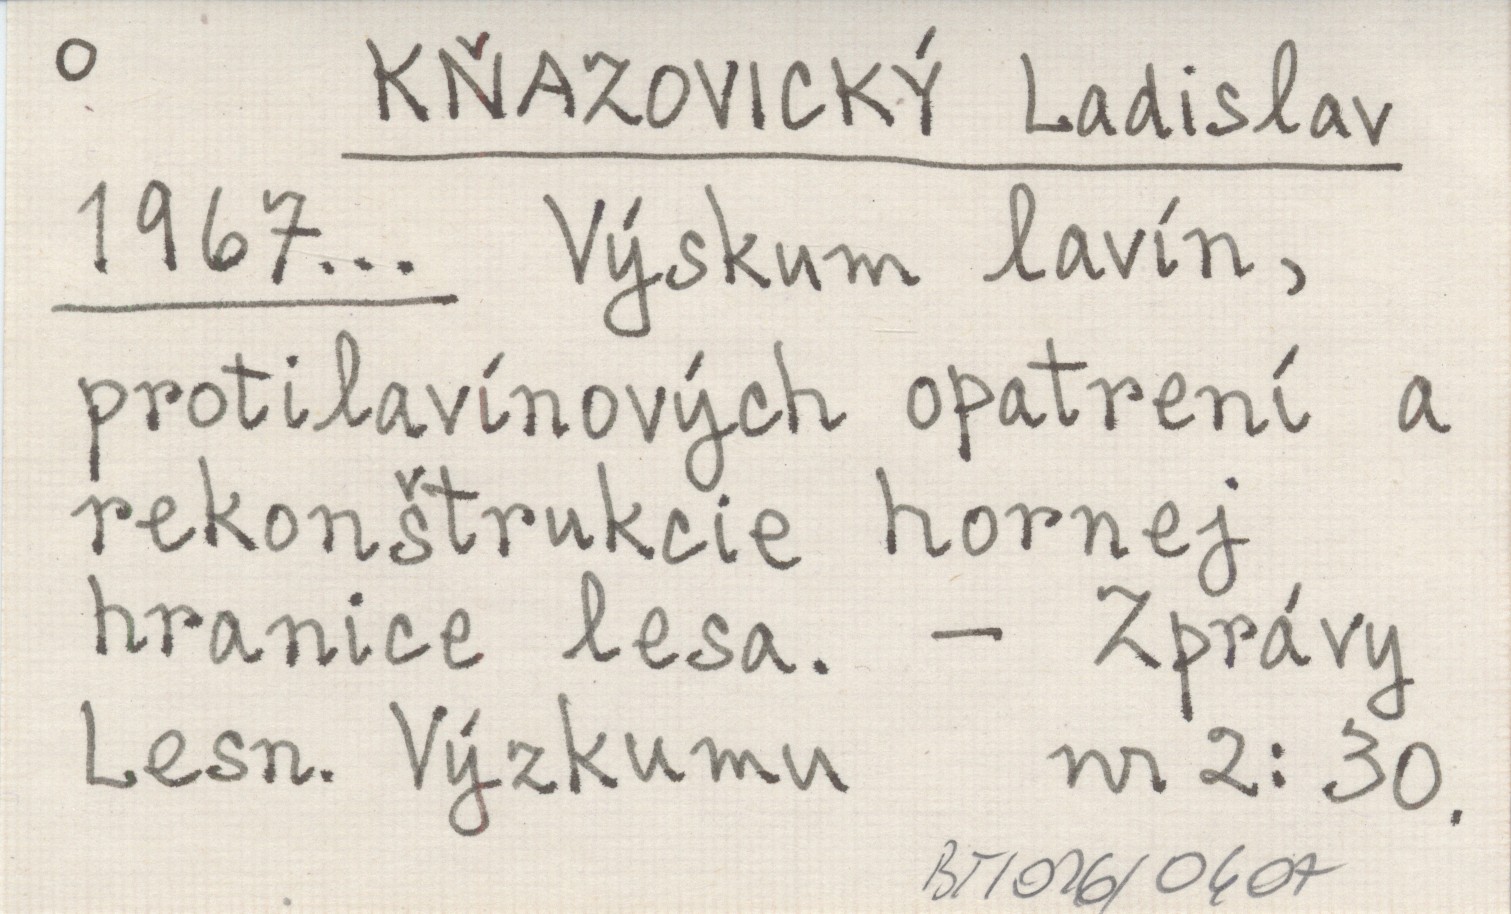 o KŇAZOVICKÝ Ladislav
1967... Výskum lavín,
protilavínových opatrení a
rekonštrukcie hornej
hranice lesa. – Zprávy
Lesn. Výzkumu nr 2: 30.